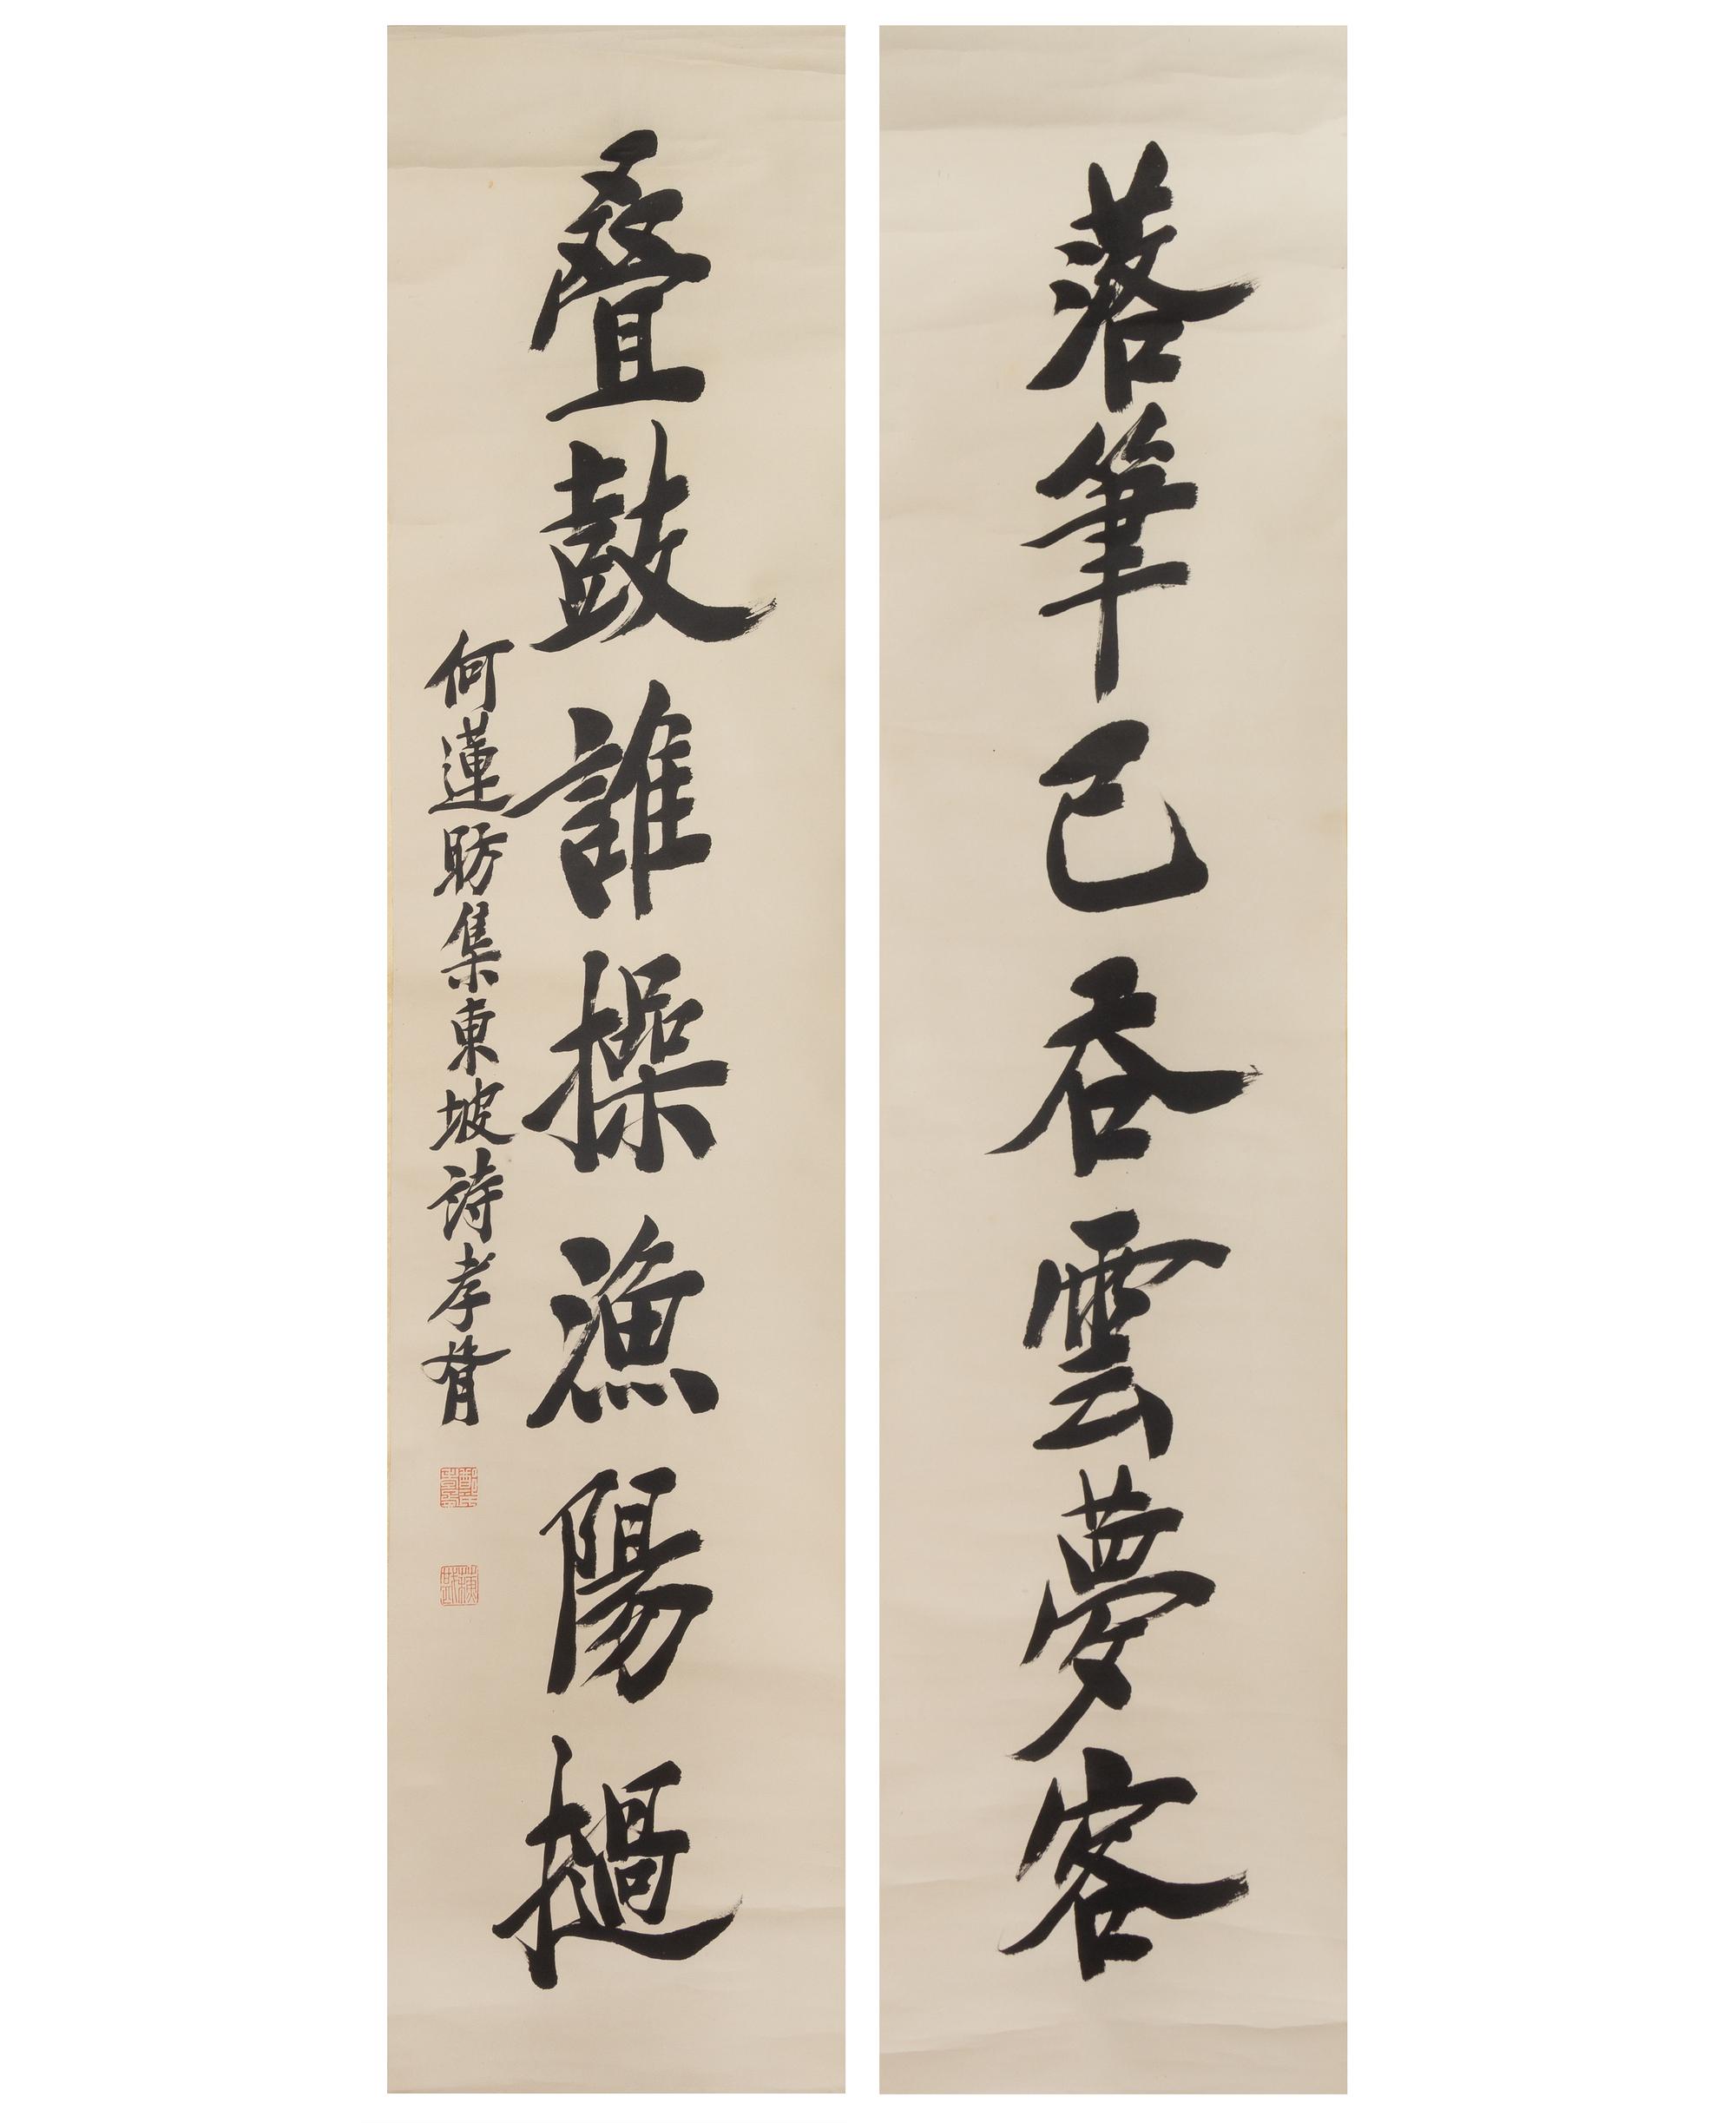 落筆已吞雲夢客
疊鼓誰操漁陽撾
何蓮舫集東坡詩孝胥